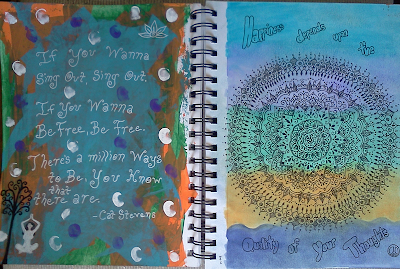 If You Wanna
Sing Out, Sing Out,
If You Wanna
Be Free, Be Free.
There's a million Ways
to Be, You Know
that
there are.
-Cat Stevens
Happiness depends upon
the
Quality of Your Thoughts